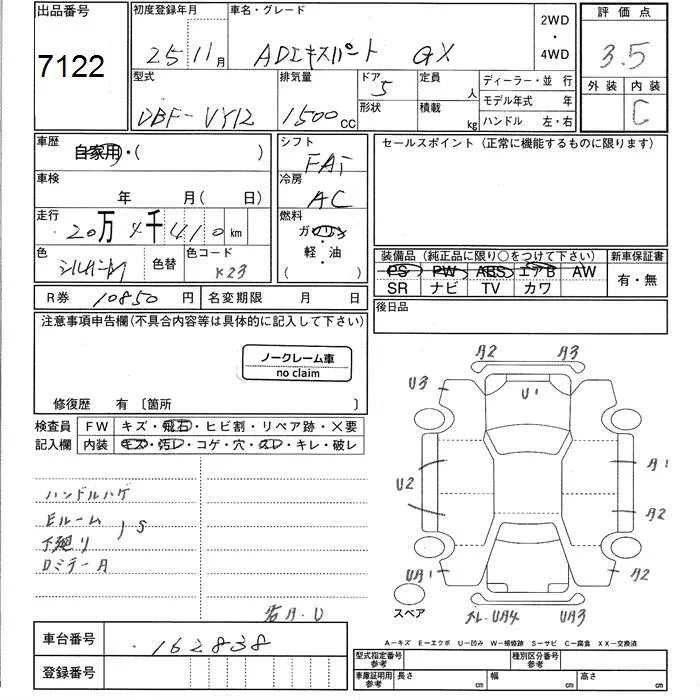 出品番号 7122
初度登録年月 25 11月
車名・グレード ADエキスパート GX
2WD・4WD
評価点 3.5
外装 内装 C
型式 DBF-VY12
排気量 1500cc
ドア 5
形状
定員 人
積載 kg
ディーラー・並行
モデル年式 年
ハンドル 左・右
車歴 自家用・( )
シフト FAT
セールスポイント(正常に機能するものに限ります)
車検 年 月(日)
冷房 AC
走行 20万4千410km
燃料 ガソリン
軽・油
( )
色 シルバーM 色替 色コード K23
装備品(純正品に限り○をつけて下さい) 新車保証書
PS PW ABS エアB AW 有・無
SR ナビ TV カワ
R券 10850円 名変期限 月 日
後日品
注意事項申告欄(不具合内容等は具体的に記入して下さい)
ノークレーム車
no claim
修復歴 有 〔箇所 〕
検査員 FW キズ・飛石・ヒビ割・リペア跡・×要
記入欄 内装 キズ・汚レ・コゲ・穴・スレ・キレ・破レ
ハンドルハゲ
Eルーム
下廻り S
ロミラーA
A2 A3
U3 U1
U2 A1
A2
UA1 A2
スペア UA4 UA3
車台番号 162838
登録番号
A-キズ E-エクボ U-凹み W-補修跡 S-サビ C-腐食 XX-交換済
型式指定番号 参考 種別区分番号 参考
車庫証明用 参考 長さ 幅 高さ